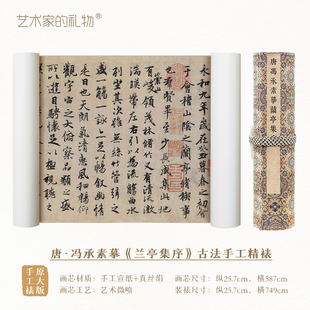 艺术家的礼物®
永和九年歲在癸丑暮春之初會
于會稽山陰之蘭亭脩稧事
也群賢畢至少長咸集此地
有崇山峻領茂林脩竹又有清流激
湍暎帶左右引以為流觴曲水
列坐其次雖無絲竹管弦之
盛一觴一詠亦足以暢敘幽情
是日也天朗氣清惠風和暢仰
觀宇宙之大俯察品類之盛
所以遊目騁懷足以極視聽之
唐馮承素摹蘭亭集序
唐·冯承素摹《兰亭集序》古法手工精裱
原大版
手工裱
画芯材质：手工宣纸+真丝绢
画芯尺寸：纵25.7cm，横587cm
画芯工艺：艺术微喷
装裱尺寸：纵25.7cm，横749cm